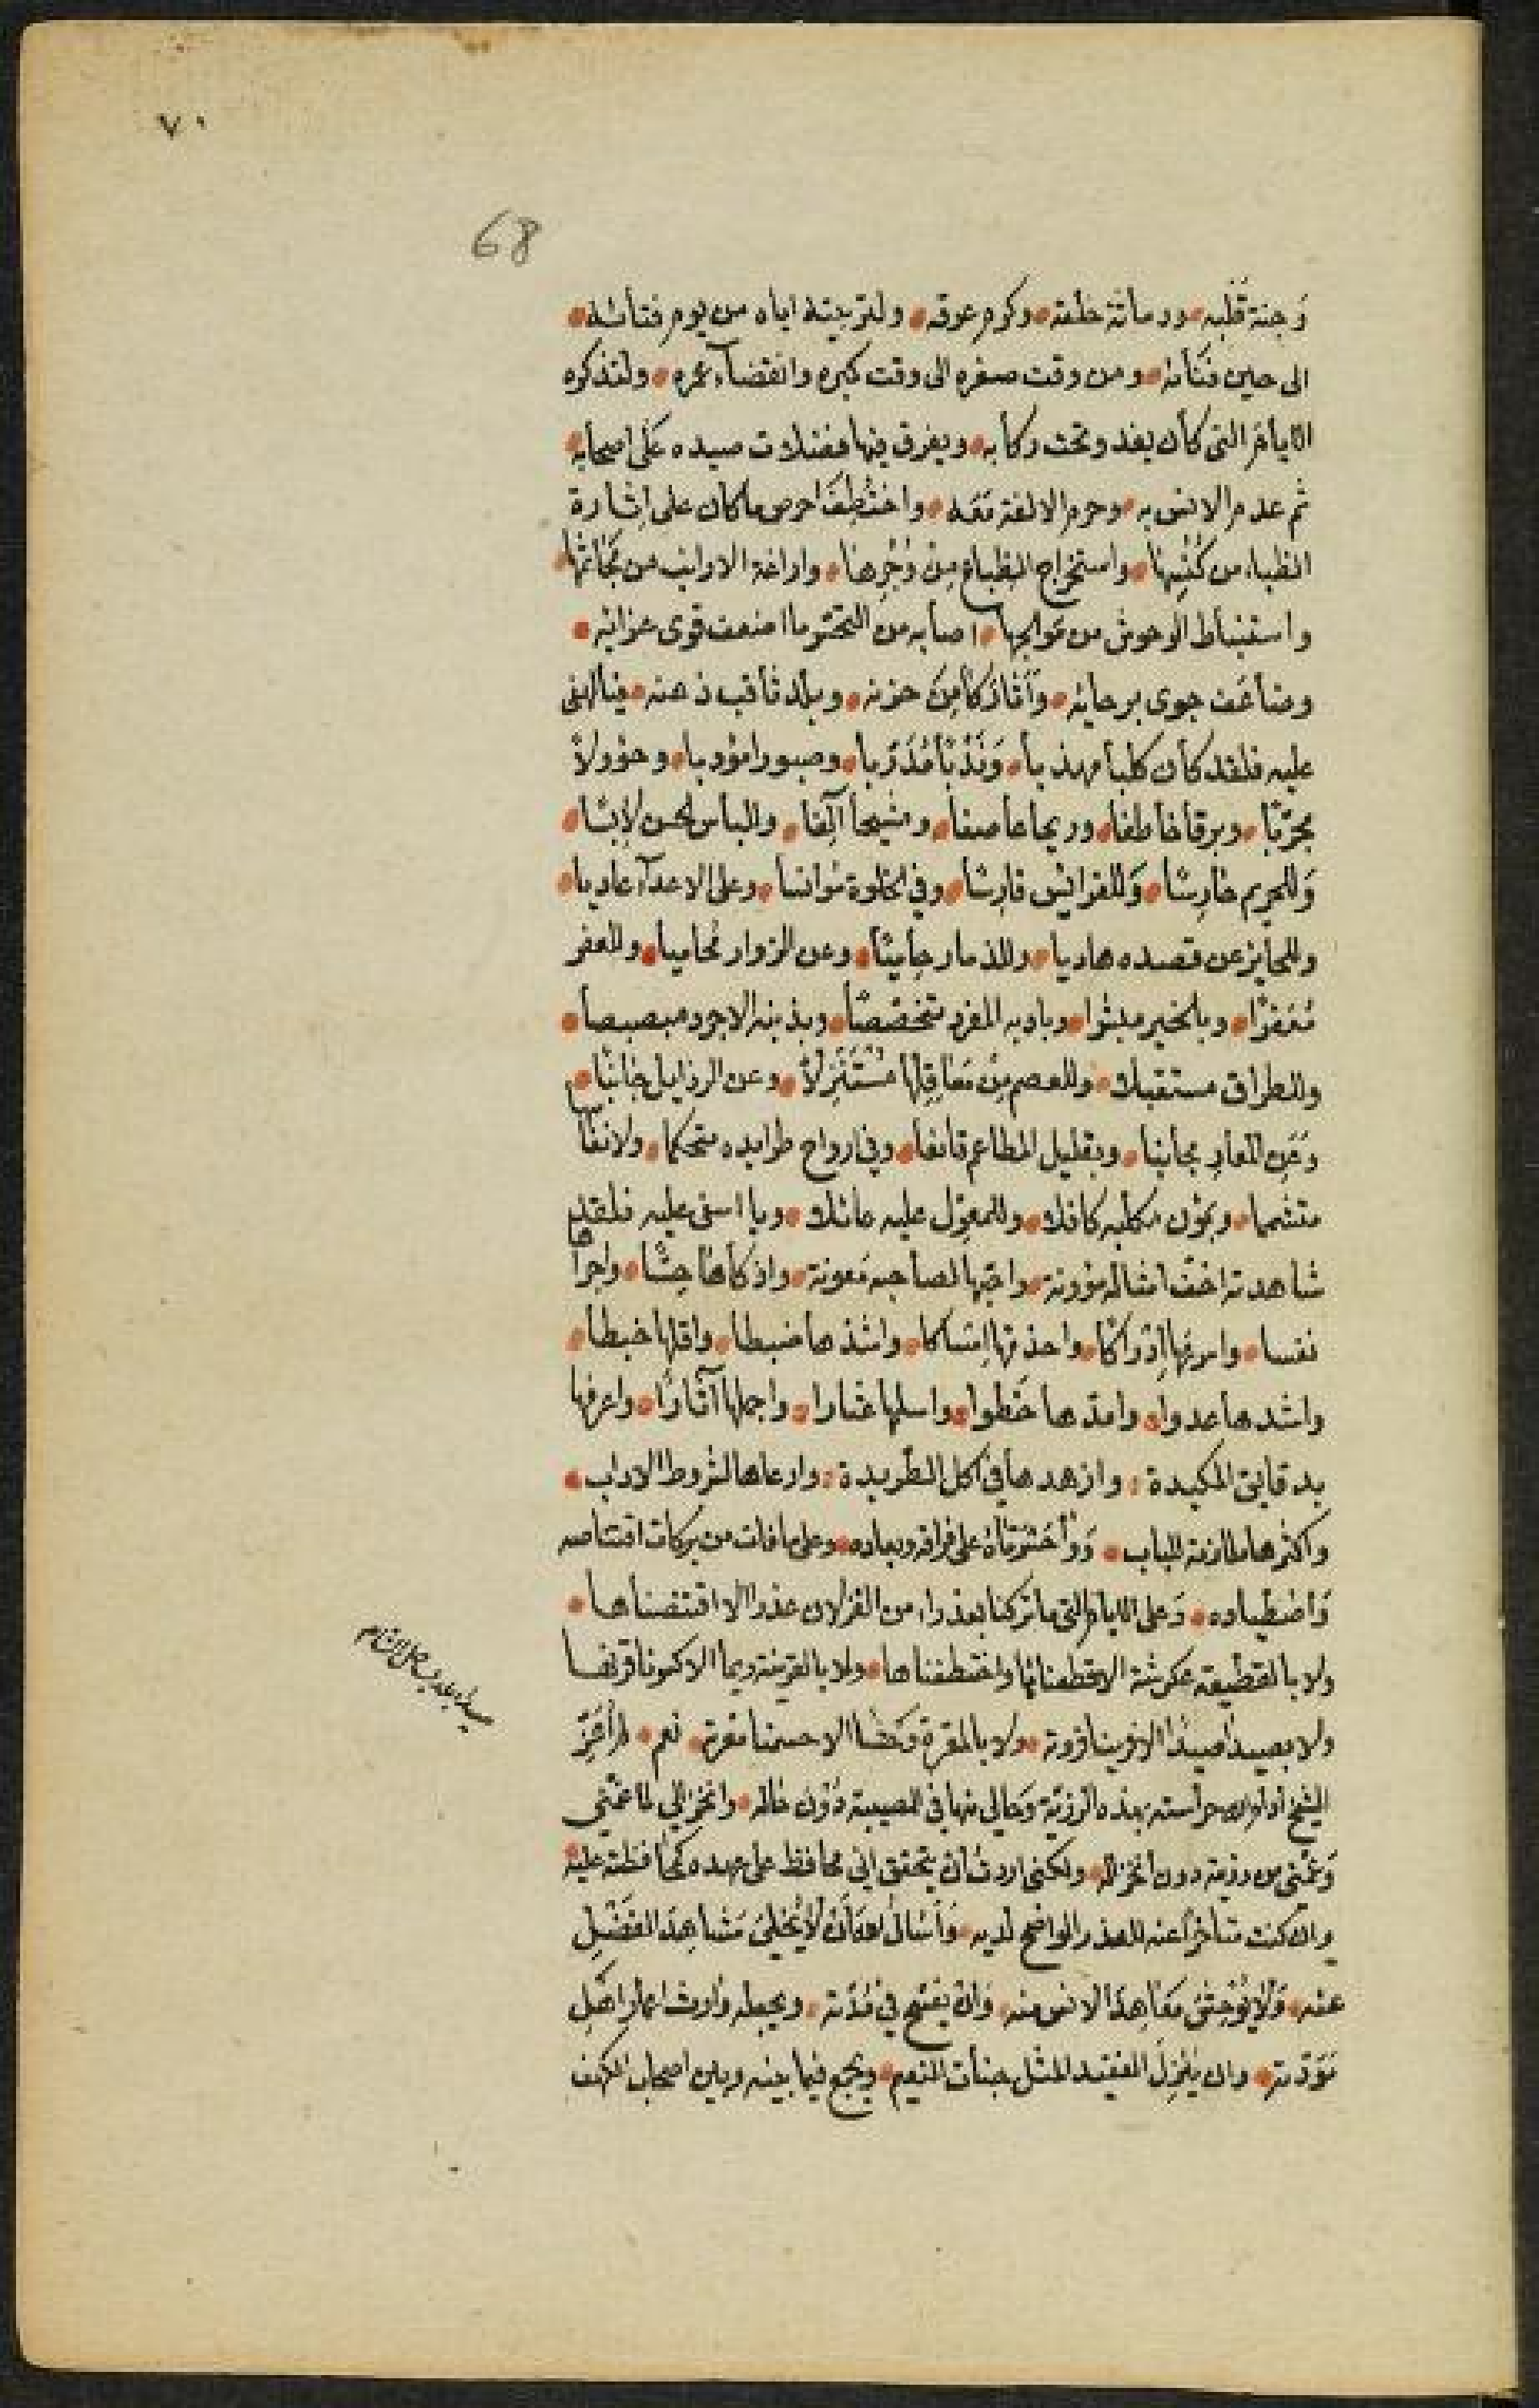 ٧٠
68
وجنة قلبه ودماثة خلقه وكرم عرقه ولتربيته اياه من يوم فتائه
الى حين فنائه ومن وقت صغره الى وقت كبره وانقضآء عمره ولتذكره
الايام التى كان يغدو تحت ركابه ويفرق فيها فضلات صيده على اصحابه
ثم عدم الانس به وحرم الالفة معه واختطف احرص ما كان على اثارة
الظباء من كنسها واستخراج الضباع من وجرها واراغة الارانب من مجاثمها
واستنباط الوحوش من موالجها اصابه من التحسر ما اضعف قوى عزائه
وضاعف جوى برحائه وآثار كامن حزنه وبلد ثاقب ذهنه فيا لهفى
عليه فلقد كان كلبا مهذبا وندبا مدربا وصبورا مؤدبا وحؤولا
مجربا وبرقا خاطفا وريحا عاصفا ومشيحا آلفا والباس لحسن لابسا
وللحريم حارسا وللفرائس فارسا وفي الخلوة مؤانسا وعلى الاعدآء عاديا
وللجايز عن قصده هاديا وللذمار حاميا وعن الزوار محاميا وللعفر
معفرا وبالخير مبشرا وبادبه المفرد متخصصا وبذنبه الاجرد مبصبصا
وللطراق مستقبلا وللعصم من معاقلها مستنزلا وعن الرذايل جانبا
وعن المعاير مجانبا وبقليل المطاعم قانعا وفي ارواح طرايده متحكما ولانفا
متشمما وبمؤن مكلبه كافلا وللمعول عليه عائلا ويا اسفى عليه فلقد
شاهدته اخف امثاله مؤونة واحبها لصاحبه معونة واذكاها حسا واجرا ها
نفسا واسرعها ادراكا واحذقها امساكا واشدها ضبطا واقلها خبطا
واشدها عدوا وامدها خطوا واسلها عثارا واجملها آثارا واعرفها
بدقايق المكيدة وازهدها في اكل الطريدة وارعاها لشروط الاداب
واكثرها ملازمة للباب ووا حسرتاه على فراقه وبعاده وعلى ما فات من بركات اقتناصه
واصطياده وعلى الايام التى ما تركنا بعذراء من الغزلان عذرا الا اقتضضناها
ولا بالقطيعة عكرشة الا قطعناها واختطفناها ولا بالقرينة ريما الا كسونا قرنها
ولا بصيدا صيدا الا فرينا فروته ولا بالمقرة وحشا الا حسمنا مقرته نعم لم اعز
الشيخ ادام الله حراسته بهذه الرزية وحالي منها في المصيبة دون حاله وانخزالي لما عمنى
وعمتنى من رزيته دون انخزاله ولكنى اردت ان يتحقق انى محافظ على عهده كمحافظته عليه
وان كنت متاخرا عنه للعذر الواضح لديه واسال الله ان لا يخلى مشاهد الفضل
عنه ولا يوحش معاهد الانس منه وان يفسح في مدته ويجعله وارث اعمار اهل
مودته وان ينزل الفقيد المثل جنات النعيم ويجمع فيما بينه وبين اصحاب الكهف